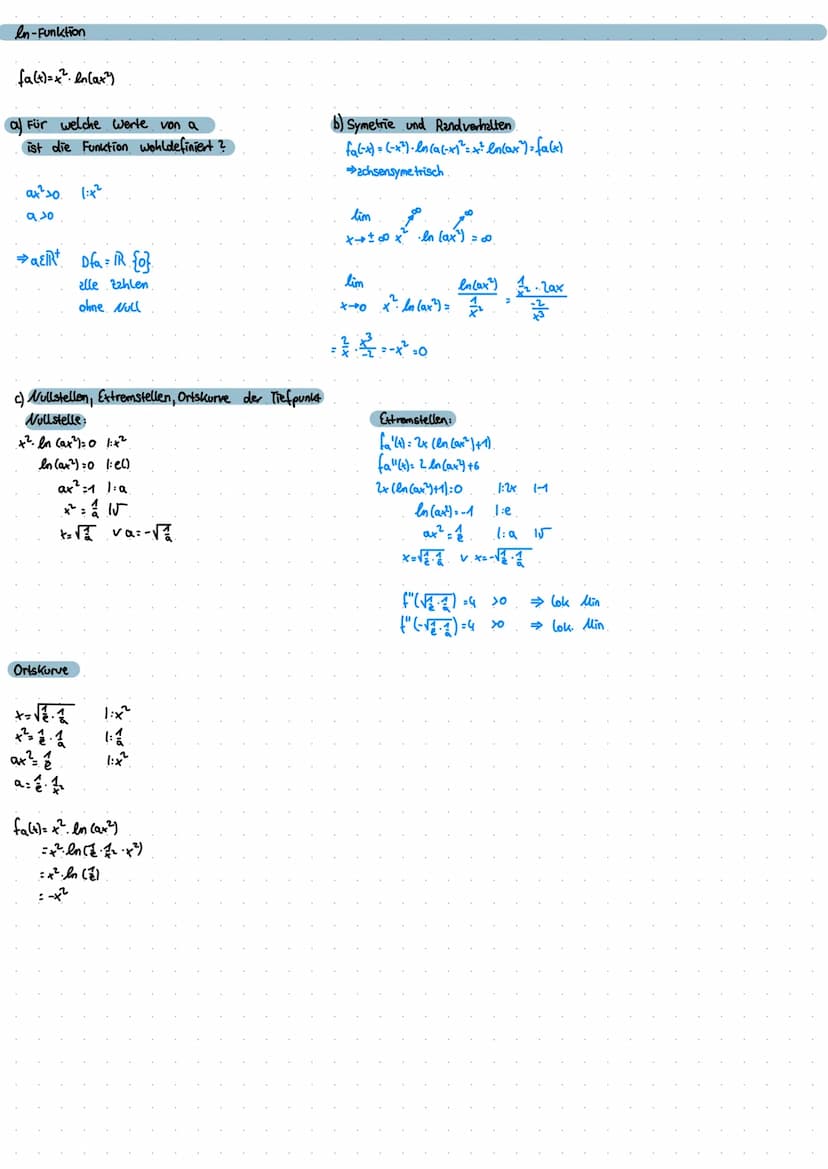 ln-Funktion
fa(x)=x²·ln(ax²)
a) Für welche Werte von a
ist die Funktion wohldefiniert?
ax²>0 |:x²
a>0
⇒a∈ℝ⁺ Dfa=ℝ\{0}
alle Zahlen
ohne Null
b) Symetrie und Randverhalten
fa(-x)=(-x²)·ln(a(-x)²=x²·ln(ax²)=fa(x)
⇒achsensymetrisch
lim ∞ ∞
x→±∞ x²·ln(ax²)=∞
lim
x→0 x²·ln(ax²)= ln(ax²)/(1/x²) = (1/x²·2ax)/(-2/x³)
=2/x·x³/-2=-x²=0
c) Nullstellen, Extremstellen, Ortskurve der Tiefpunkt
Nullstelle:
x²·ln(ax²)=0 |:x²
ln(ax²)=0 |:e()
ax²=1 |:a
x²=1/a |√
x=√(1/a) ∨ a=-√(1/a)
Extremstellen:
fa'(x)=2x(ln(ax²)+1)
fa''(x)=2ln(ax²)+6
2x(ln(ax²)+1)=0 |:2x |-1
ln(ax²)=-1 |:e
ax²=1/e |:a |√
x=√(1/e·1/a) ∨ x=-√(1/e·1/a)
f''(√(1/e·1/a))=4 >0 ⇒ lok Min
f''(-√(1/e·1/a))=4 >0 ⇒ lok. Min
Ortskurve
x=√(1/e·1/a) |:x²
x²=1/e·1/a |:1/a
ax²=1/e |:x²
a=1/e·1/x²
fa(x)=x²·ln(ax²)
=x²·ln(1/e·1/x²·x²)
=x²·ln(1/e)
=-x²